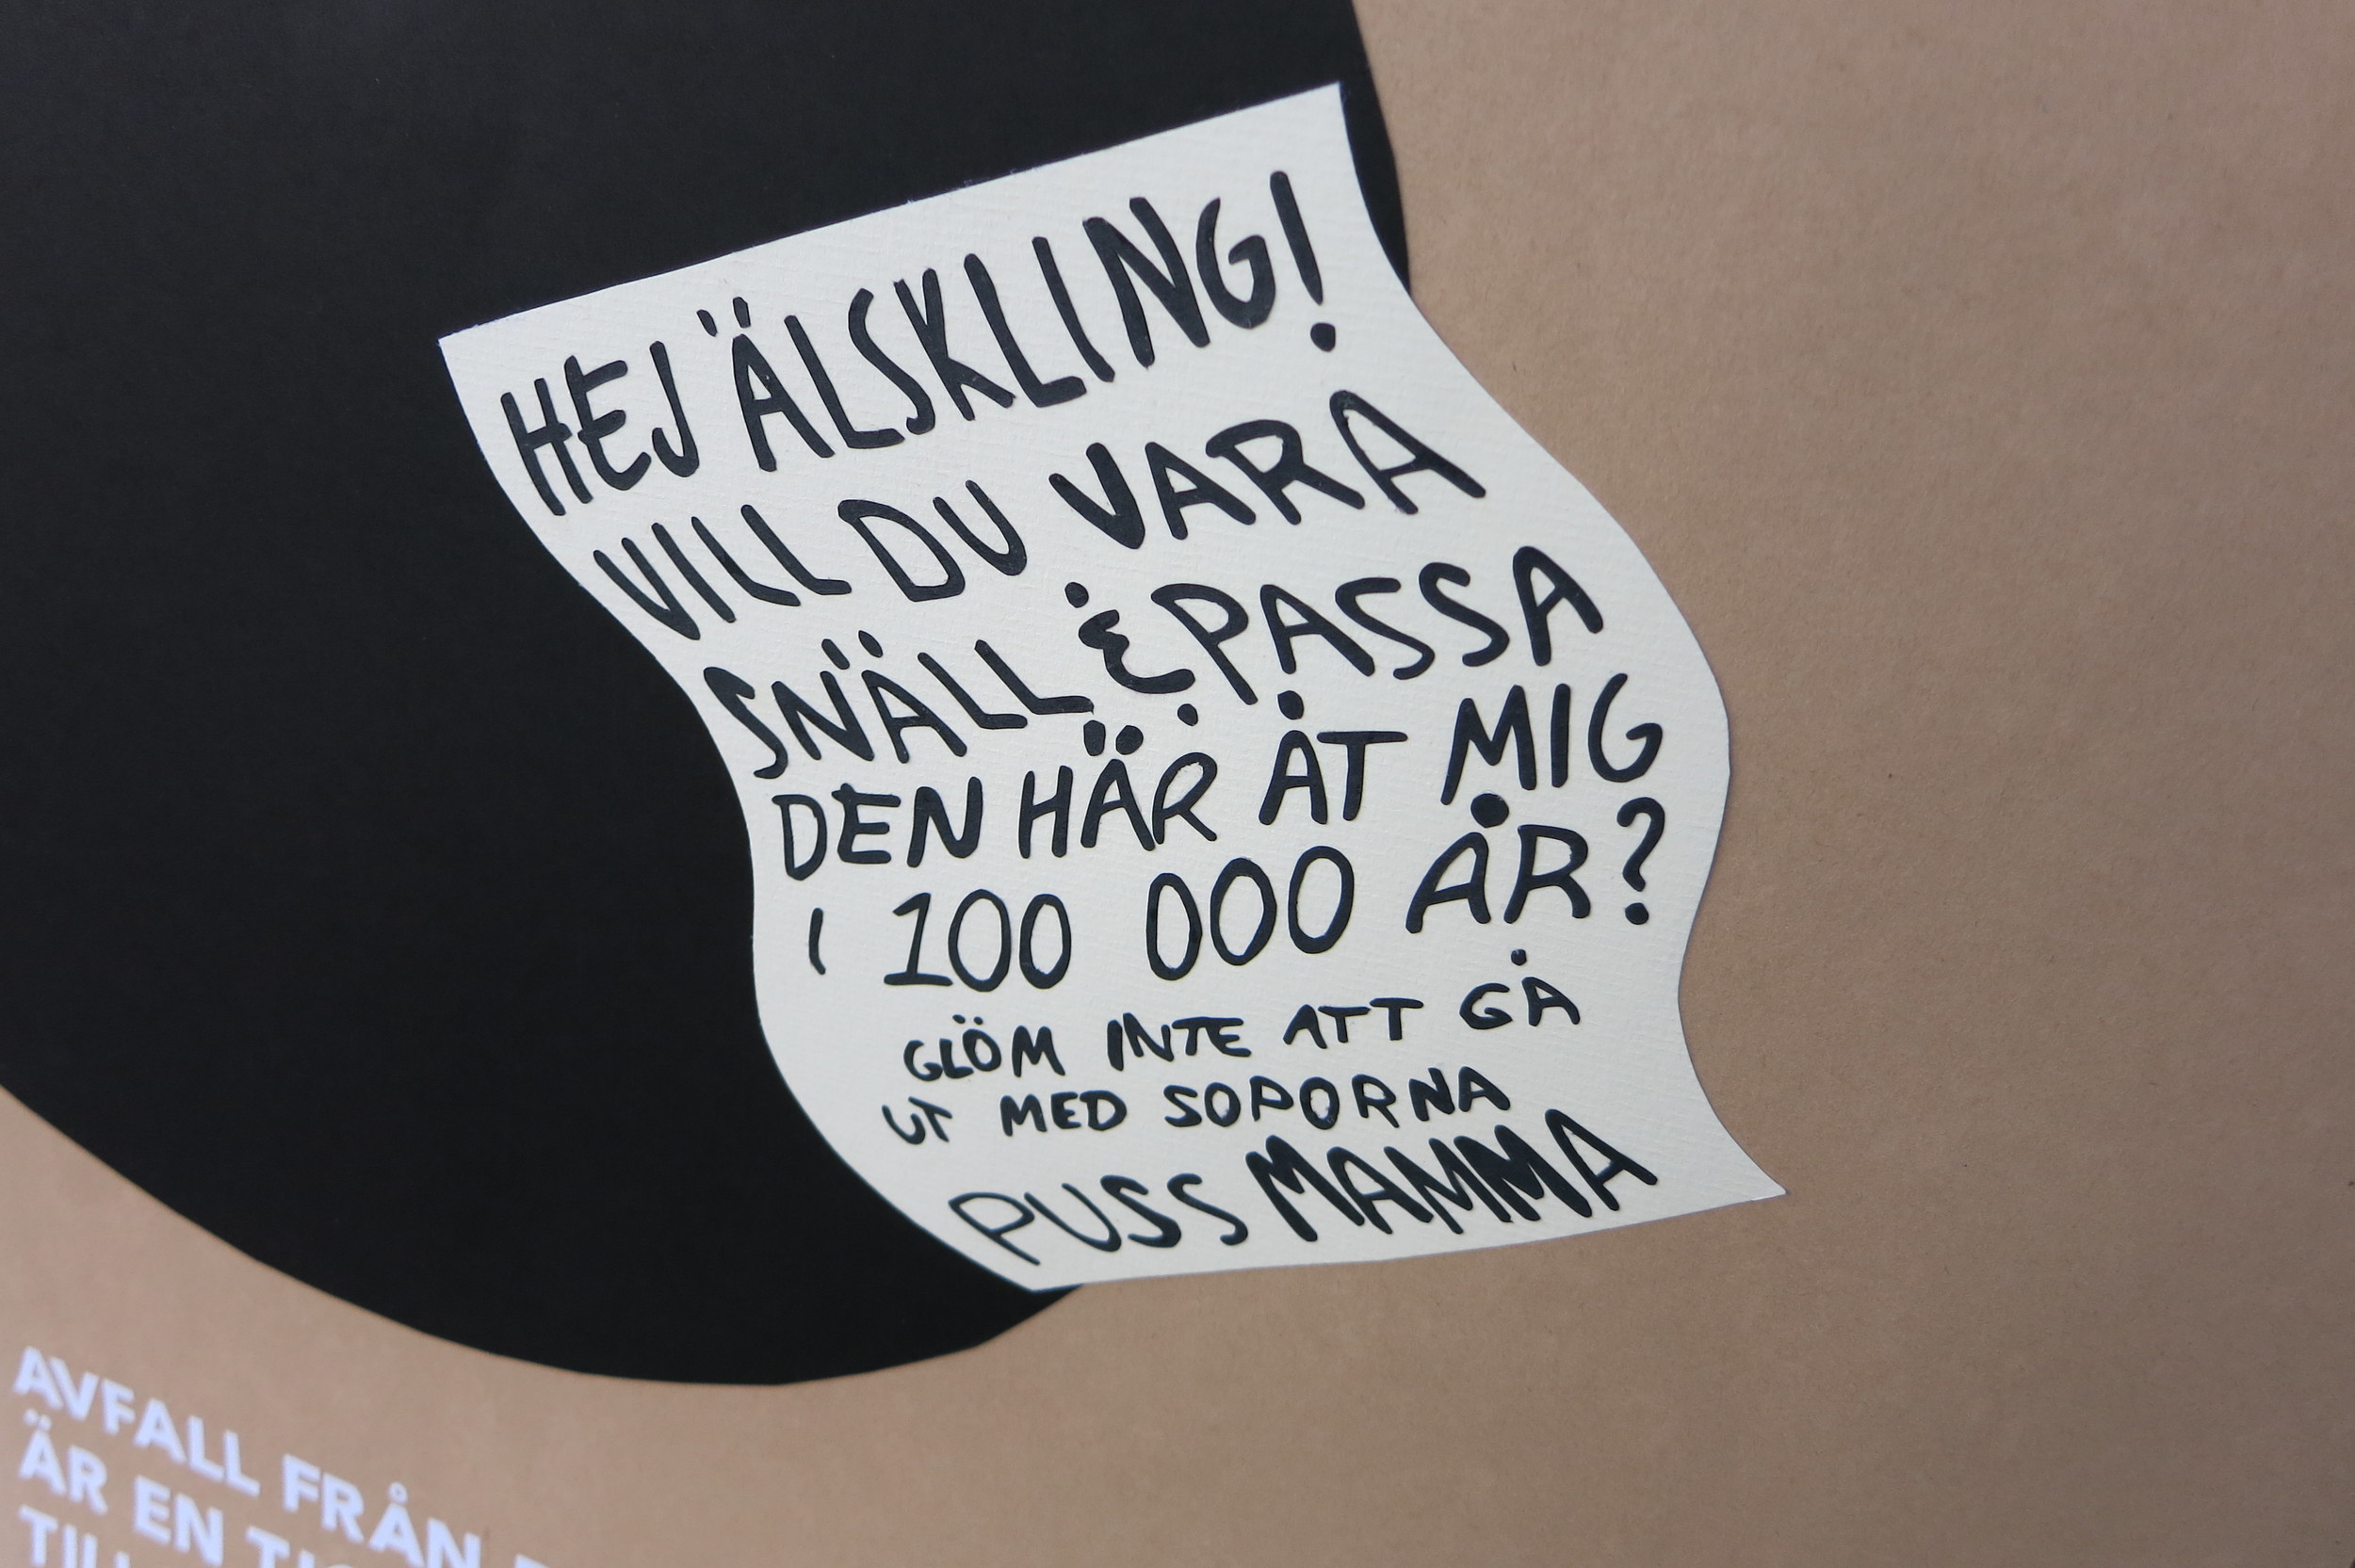 HEJ ÄLSKLING!
VILL DU VARA
SNÄLL & PASSA
DEN HÄR ÅT MIG
I 100 000 ÅR?
GLÖM INTE ATT GÅ
UT MED SOPORNA
PUSS MAMMA
AVFALL FRÅN
ÄR EN